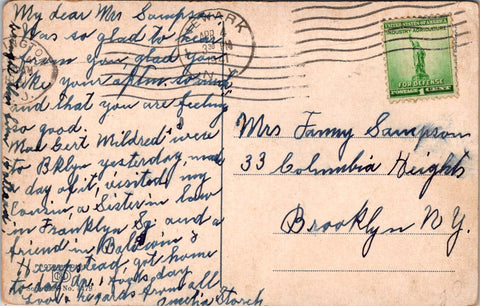 My dear Mrs Sampson.
Was so glad to hear
from you glad you
like your
and that you are feeling
so good.
Mae Gert Mildred & I were
to Bklyn yesterday, made
a day of it, visited my
cousin, a Sister in law
in Franklyn Sq. and a
friend in Baldwin &
Hempstead, got home
today,
Love & regards from all
Storch
NEWARK
APR
N.J.
UNITED STATES OF AMERICA
INDUSTRY AGRICULTURE
FOR DEFENSE
1 CENT
Mrs Fanny Sampson
33 Columbia Heights
Brooklyn N.Y.